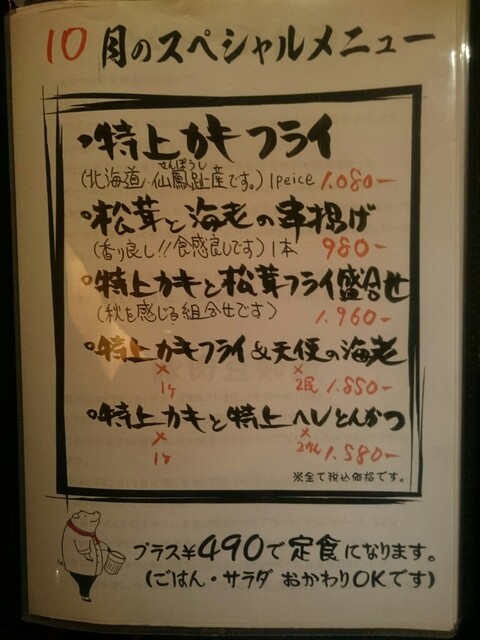 10月のスペシャルメニュー
特上カキフライ
せんぽうし
(北海道・仙鳳趾産です。) 1peice 1.080-
松茸と海老の串揚げ
(香り良し!!食感良しです) 1本 980-
特上カキと松茸フライ盛合せ
(秋を感じる組合せです) 1.960-
特上カキフライ&天使の海老
× 1ヶ × 2尾 1.850-
特上カキと特上ヘレとんかつ
× 1ヶ × 1.580-
※全て税込価格です。
プラス¥490で定食になります。
(ごはん・サラダ おかわりOKです)